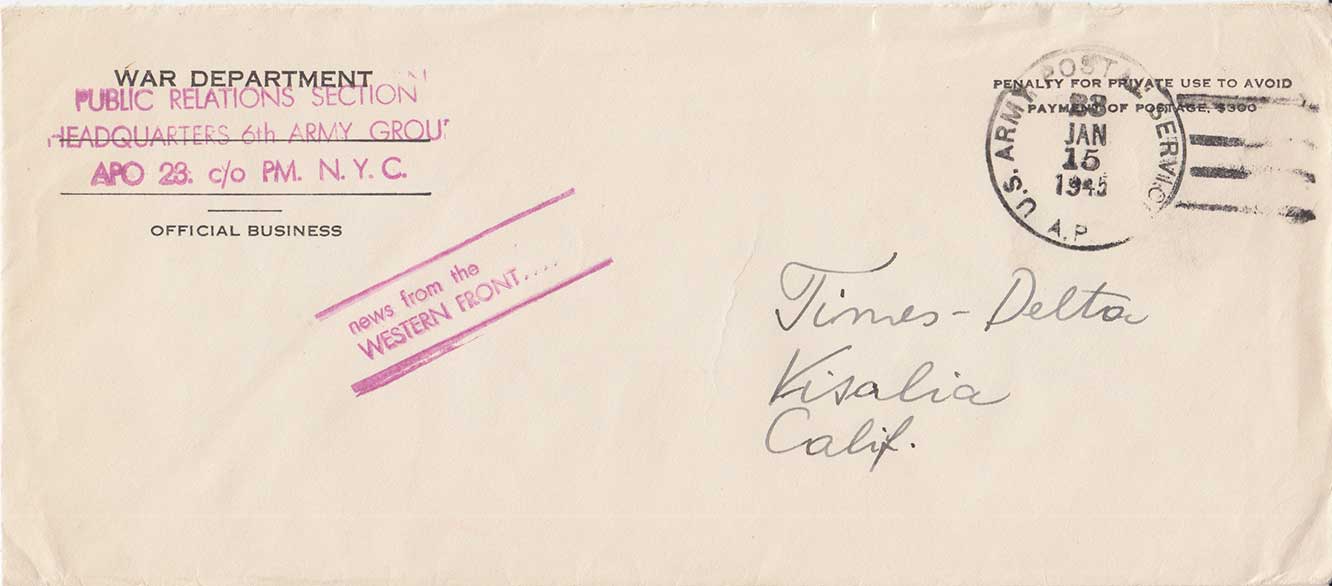 WAR DEPARTMENT
PUBLIC RELATIONS SECTION
HEADQUARTERS 6th ARMY GROUP
APO 23. c/o PM. N. Y. C.
OFFICIAL BUSINESS
news from the
WESTERN FRONT....
PENALTY FOR PRIVATE USE TO AVOID
PAYMENT OF POSTAGE, $300
U.S. ARMY POSTAL SERVICE
JAN
15
1945
A.P.
Times-Delta
Visalia
Calif.